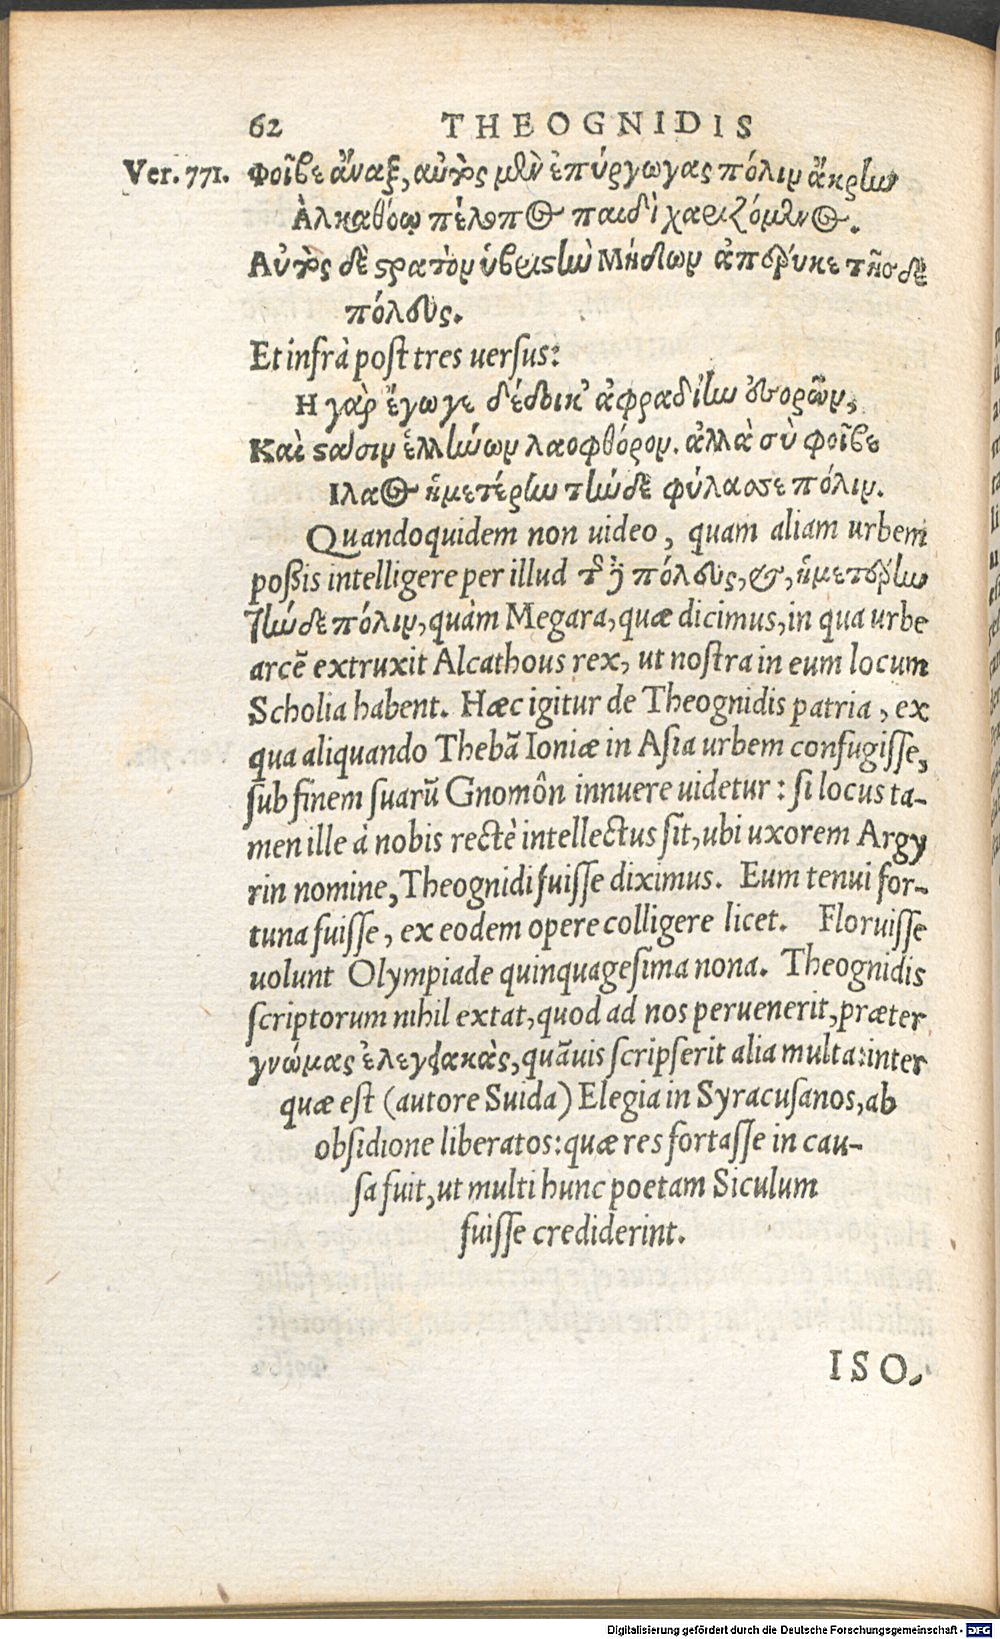 62 THEOGNIDIS
Ver. 771. Φοῖβε ἄναξ, αὐτὸς μὲν ἐπύργωγας πόλιν ἄκρην
Ἀλκαθόῳ πέλοπος παιδὶ χαριζόμενος.
Αὐτὸς δὲ στρατὸν ὑβριστὴν Μήδων ἀπέρυκε τῆσδε
πόλευς.
Et infrà post tres uersus:
Η γὰρ ἔγωγε δέδοικ’ ἀφραδίην ἐσορῶν,
Καὶ στάσιν ἑλλήνων λαοφθόρον. ἀλλὰ σὺ φοῖβε
Ιλαος ἡμετέρην τήνδε φύλασσε πόλιν.
Quandoquidem non uideo, quam aliam urbem
poßis intelligere per illud πόλευς, &, ἡμετέρην
τήνδε πόλιν, quàm Megara, quæ dicimus, in qua urbe
arcē extruxit Alcathous rex, ut nostra in eum locum
Scholia habent. Hæc igitur de Theognidis patria, ex
qua aliquando Thebā Ioniæ in Asia urbem confugisse,
sub finem suarū Gnomôn innuere uidetur: si locus ta-
men ille à nobis rectè intellectus sit, ubi uxorem Argy
rin nomine, Theognidi fuisse diximus. Eum tenui for-
tuna fuisse, ex eodem opere colligere licet. Floruisse
uolunt Olympiade quinquagesima nona. Theognidis
scriptorum nihil extat, quod ad nos peruenerit, præter
γνώμας ἐλεγειακὰς, quāuis scripserit alia multa: inter
quæ est (autore Suida) Elegia in Syracusanos, ab
obsidione liberatos: quæ res fortasse in cau-
sa fuit, ut multi hunc poetam Siculum
fuisse crediderint.
ISO.
Digitalisierung gefördert durch die Deutsche Forschungsgemeinschaft - DFG